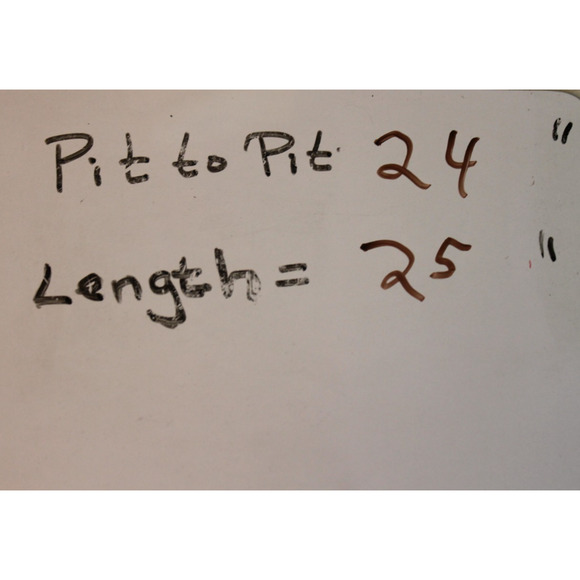 Pit to Pit 24 "
Length = 25 "